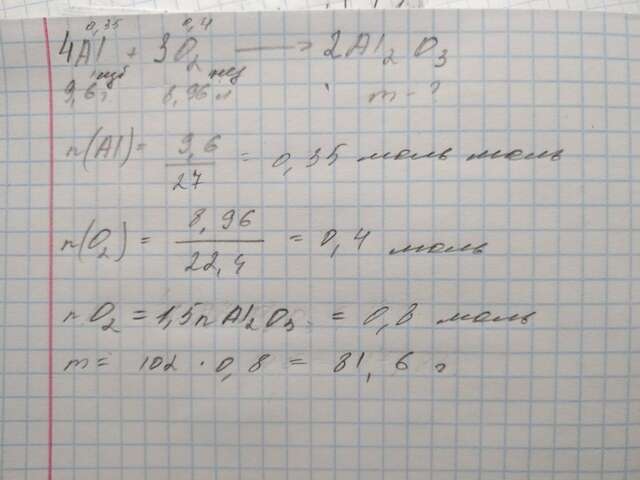 0,35 0,4
4Al + 3O2 → 2Al2O3
изб нед
9,6 г 8,96 л m - ?
n(Al) = 9,6 / 27 = 0,35 моль моль
n(O2) = 8,96 / 22,4 = 0,4 моль
n O2 = 1,5 n Al2O3 = 0,8 моль
m = 102 · 0,8 = 81,6 г